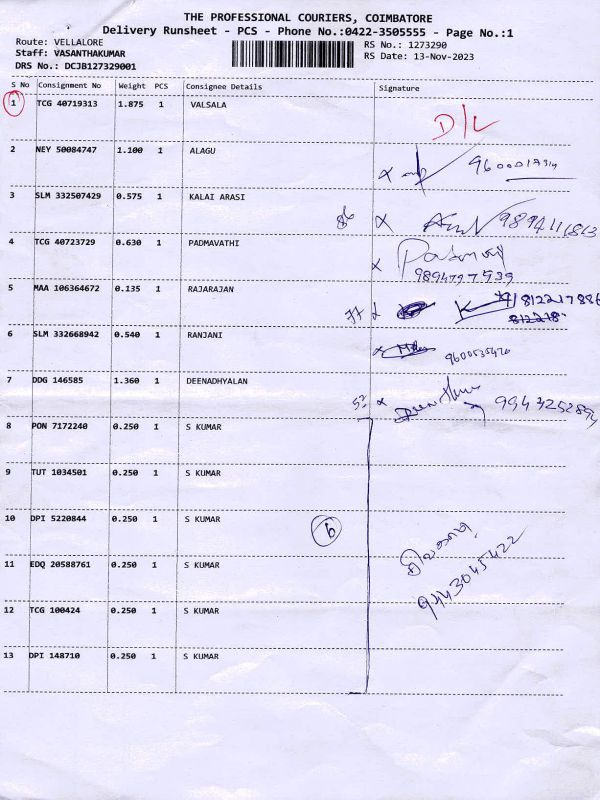 THE PROFESSIONAL COURIERS, COIMBATORE
Delivery Runsheet - PCS - Phone No.:0422-3505555 - Page No.:1
Route: VELLALORE
Staff: VASANTHAKUMAR
DRS No.: DCJB127329001
RS No.: 1273290
RS Date: 13-Nov-2023
S No Consignment No Weight PCS Consignee Details Signature
1 TCG 40719313 1.875 1 VALSALA D/L
2 NEY 50084747 1.100 1 ALAGU X
3 SLM 332507429 0.575 1 KALAI ARASI X
4 TCG 40723729 0.630 1 PADMAVATHI X
9894797539
5 MAA 106364672 0.135 1 RAJARAJAN 77
6 SLM 332668942 0.540 1 RANJANI X
7 DDG 146585 1.360 1 DEENADHYALAN
8 PON 7172240 0.250 1 S KUMAR
9 TUT 1034501 0.250 1 S KUMAR
10 DPI 5220844 0.250 1 S KUMAR 6
11 EDQ 20588761 0.250 1 S KUMAR
9443045422
12 TCG 100424 0.250 1 S KUMAR
13 DPI 148710 0.250 1 S KUMAR